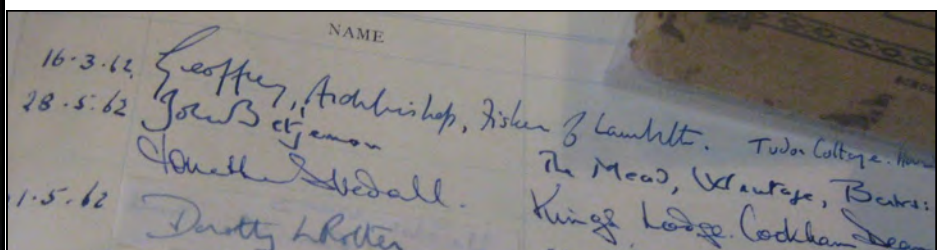 NAME
16.3.62. Geoffrey, Archbishop, Fisher of Lambeth. Tudor Cottage.
28.5.62 John Betjeman The Mead, Wantage, Berks:
Jonathan Stedall. Kings Lodge. Cookham Dean
1.5.62 Dorothy L